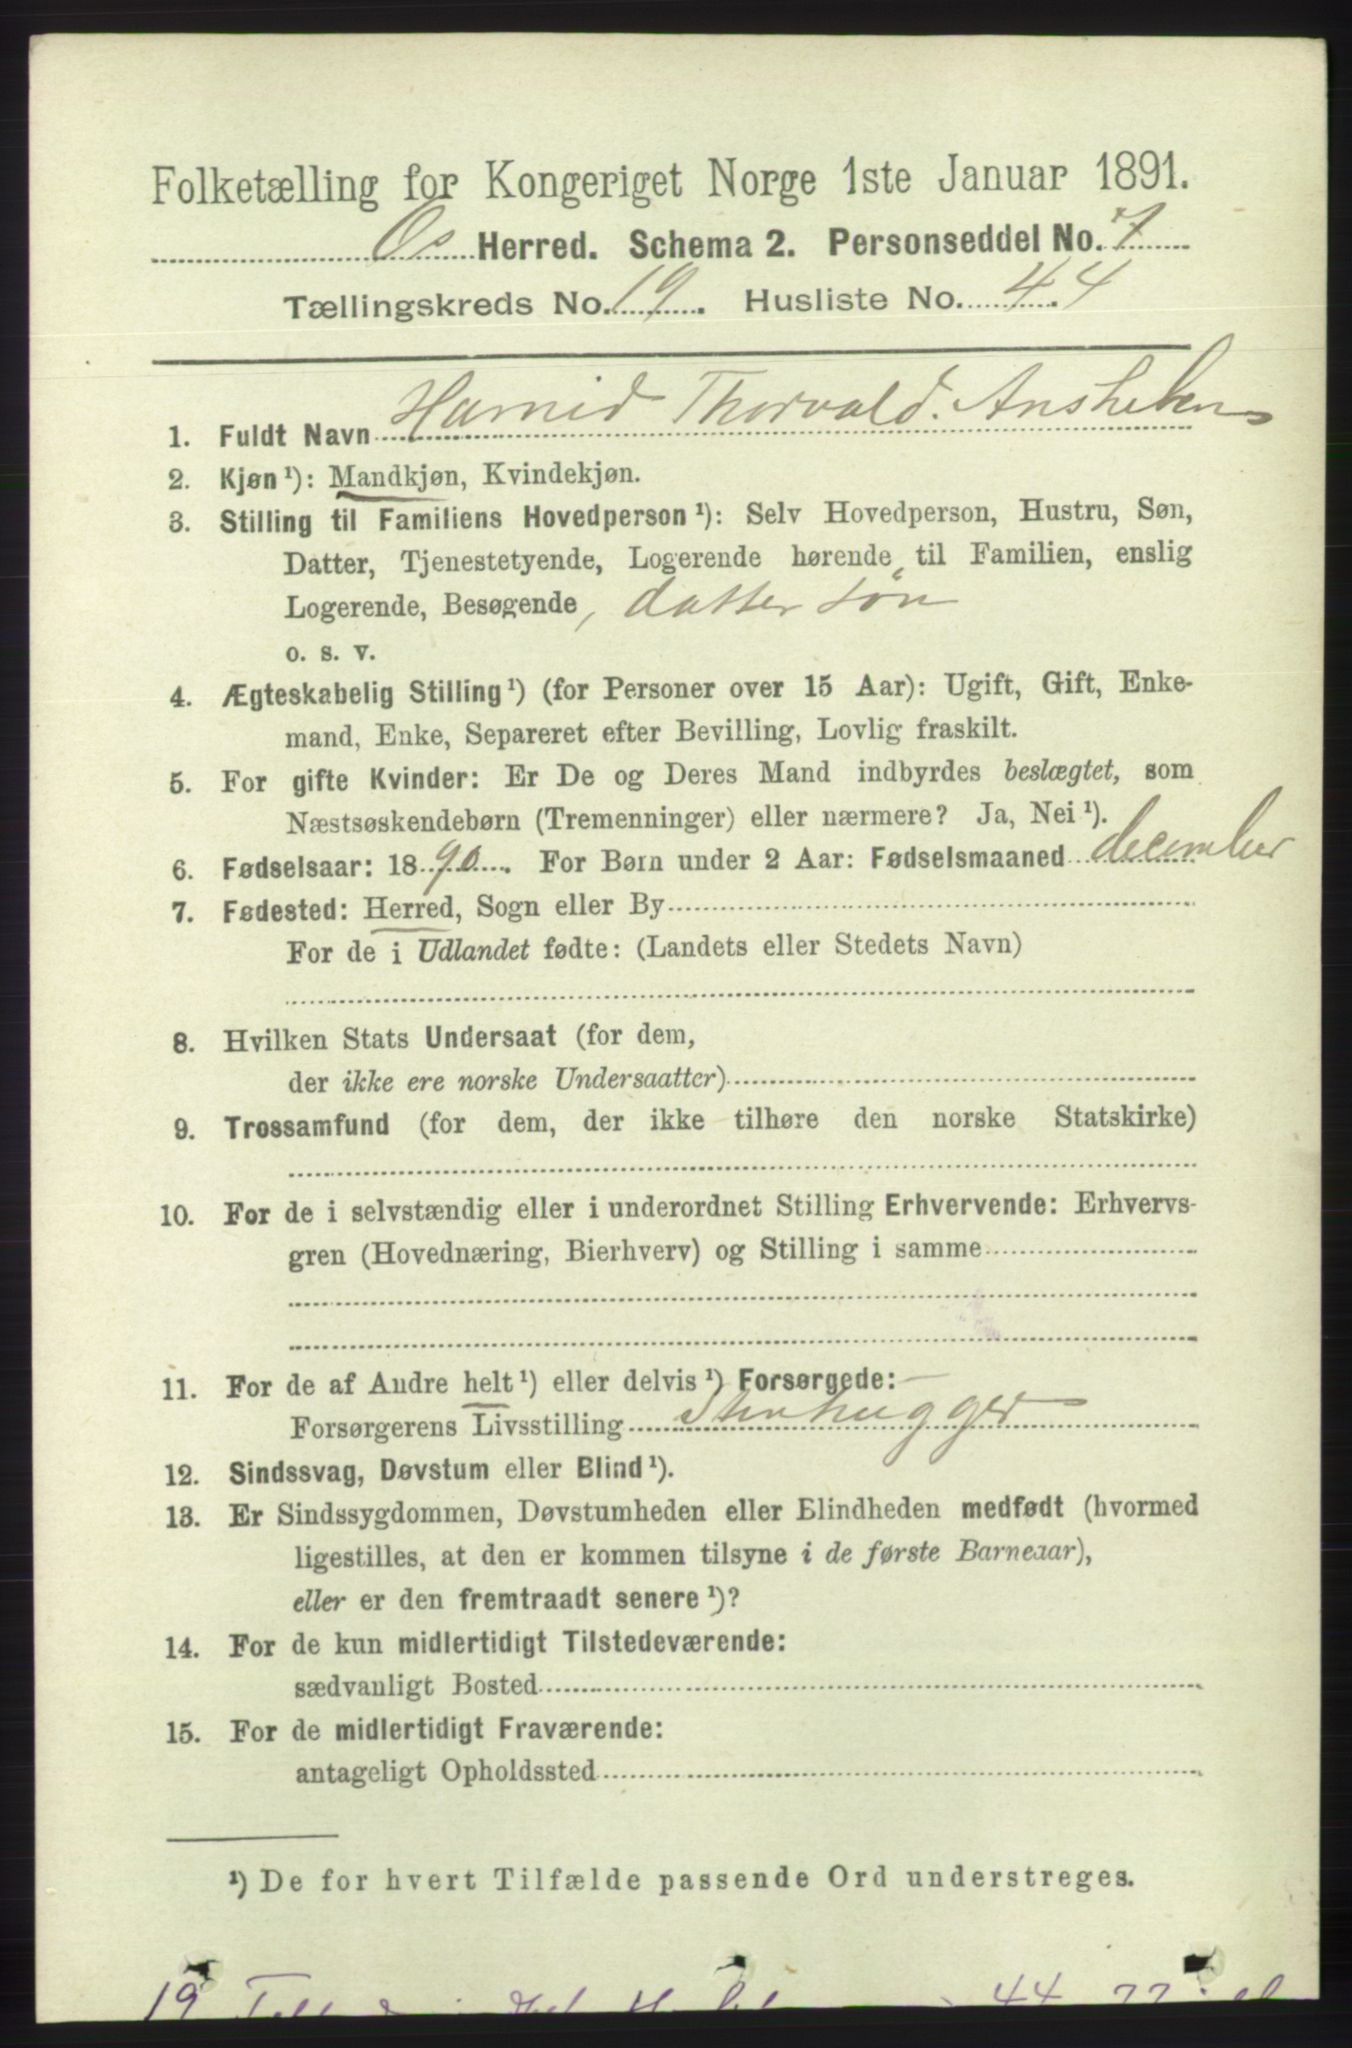 Folketælling for Kongeriget Norge 1ste Januar 1891.
Os Herred. Schema 2. Personseddel No. 7
Tællingskreds No. 19. Husliste No. 44
1. Fuldt Navn Thorvald
2. Kjøn ¹): Mandkjøn, Kvindekjøn.
3. Stilling til Familiens Hovedperson ¹): Selv Hovedperson, Hustru, Søn,
Datter, Tjenestetyende, Logerende hørende til Familien, enslig
Logerende, Besøgende, datter søn
o. s. v.
4. Ægteskabelig Stilling ¹) (for Personer over 15 Aar): Ugift, Gift, Enke-
mand, Enke, Separeret efter Bevilling, Lovlig fraskilt.
5. For gifte Kvinder: Er De og Deres Mand indbyrdes beslægtet, som
Næstsøskendebørn (Tremenninger) eller nærmere? Ja, Nei ¹).
6. Fødselsaar: 1890. For Børn under 2 Aar: Fødselsmaaned december
7. Fødested: Herred, Sogn eller By
For de i Udlandet fødte: (Landets eller Stedets Navn)
8. Hvilken Stats Undersaat (for dem,
der ikke ere norske Undersaatter)
9. Trossamfund (for dem, der ikke tilhøre den norske Statskirke)
10. For de i selvstændig eller i underordnet Stilling Erhvervende: Erhvervs-
gren (Hovednæring, Bierhverv) og Stilling i samme
11. For de af Andre helt ¹) eller delvis ¹) Forsørgede: —
Forsørgerens Livsstilling Stenhugger
12. Sindssvag, Døvstum eller Blind ¹).
13. Er Sindssygdommen, Døvstumheden eller Blindheden medfødt (hvormed
ligestilles, at den er kommen tilsyne i de første Barneaar),
eller er den fremtraadt senere ¹)?
14. For de kun midlertidigt Tilstedeværende:
sædvanligt Bosted
15. For de midlertidigt Fraværende:
antageligt Opholdssted
¹) De for hvert Tilfælde passende Ord understreges.
19 44